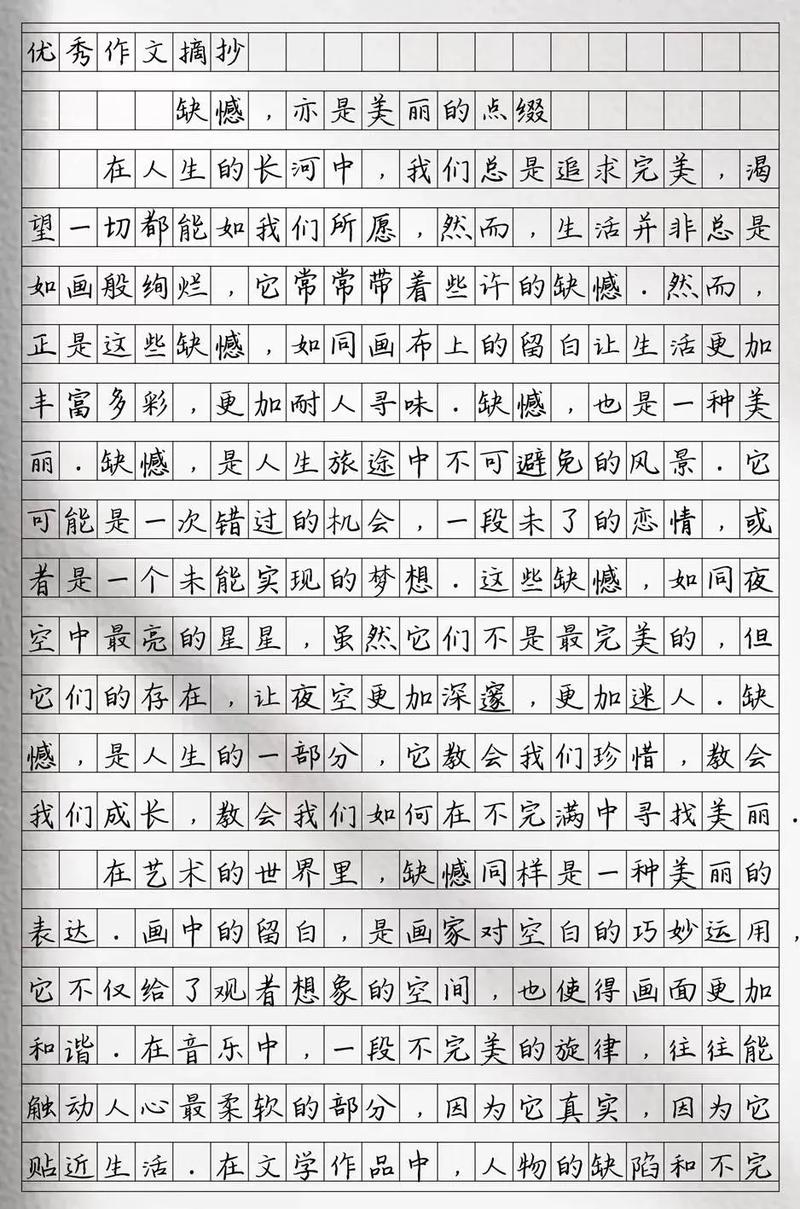 优秀作文摘抄
缺憾，亦是美丽的点缀
在人生的长河中，我们总是追求完美，渴
望一切都能如我们所愿，然而，生活并非总是
如画般绚烂，它常常带着些许的缺憾．然而，
正是这些缺憾，如同画布上的留白让生活更加
丰富多彩，更加耐人寻味．缺憾，也是一种美
丽．缺憾，是人生旅途中不可避免的风景．它
可能是一次错过的机会，一段未了的恋情，或
者是一个未能实现的梦想．这些缺憾，如同夜
空中最亮的星星，虽然它们不是最完美的，但
它们的存在，让夜空更加深邃，更加迷人．缺
憾，是人生的一部分，它教会我们珍惜，教会
我们成长，教会我们如何在不完满中寻找美丽．
在艺术的世界里，缺憾同样是一种美丽的
表达．画中的留白，是画家对空白的巧妙运用，
它不仅给了观者想象的空间，也使得画面更加
和谐．在音乐中，一段不完美的旋律，往往能
触动人心最柔软的部分，因为它真实，因为它
贴近生活．在文学作品中，人物的缺陷和不完